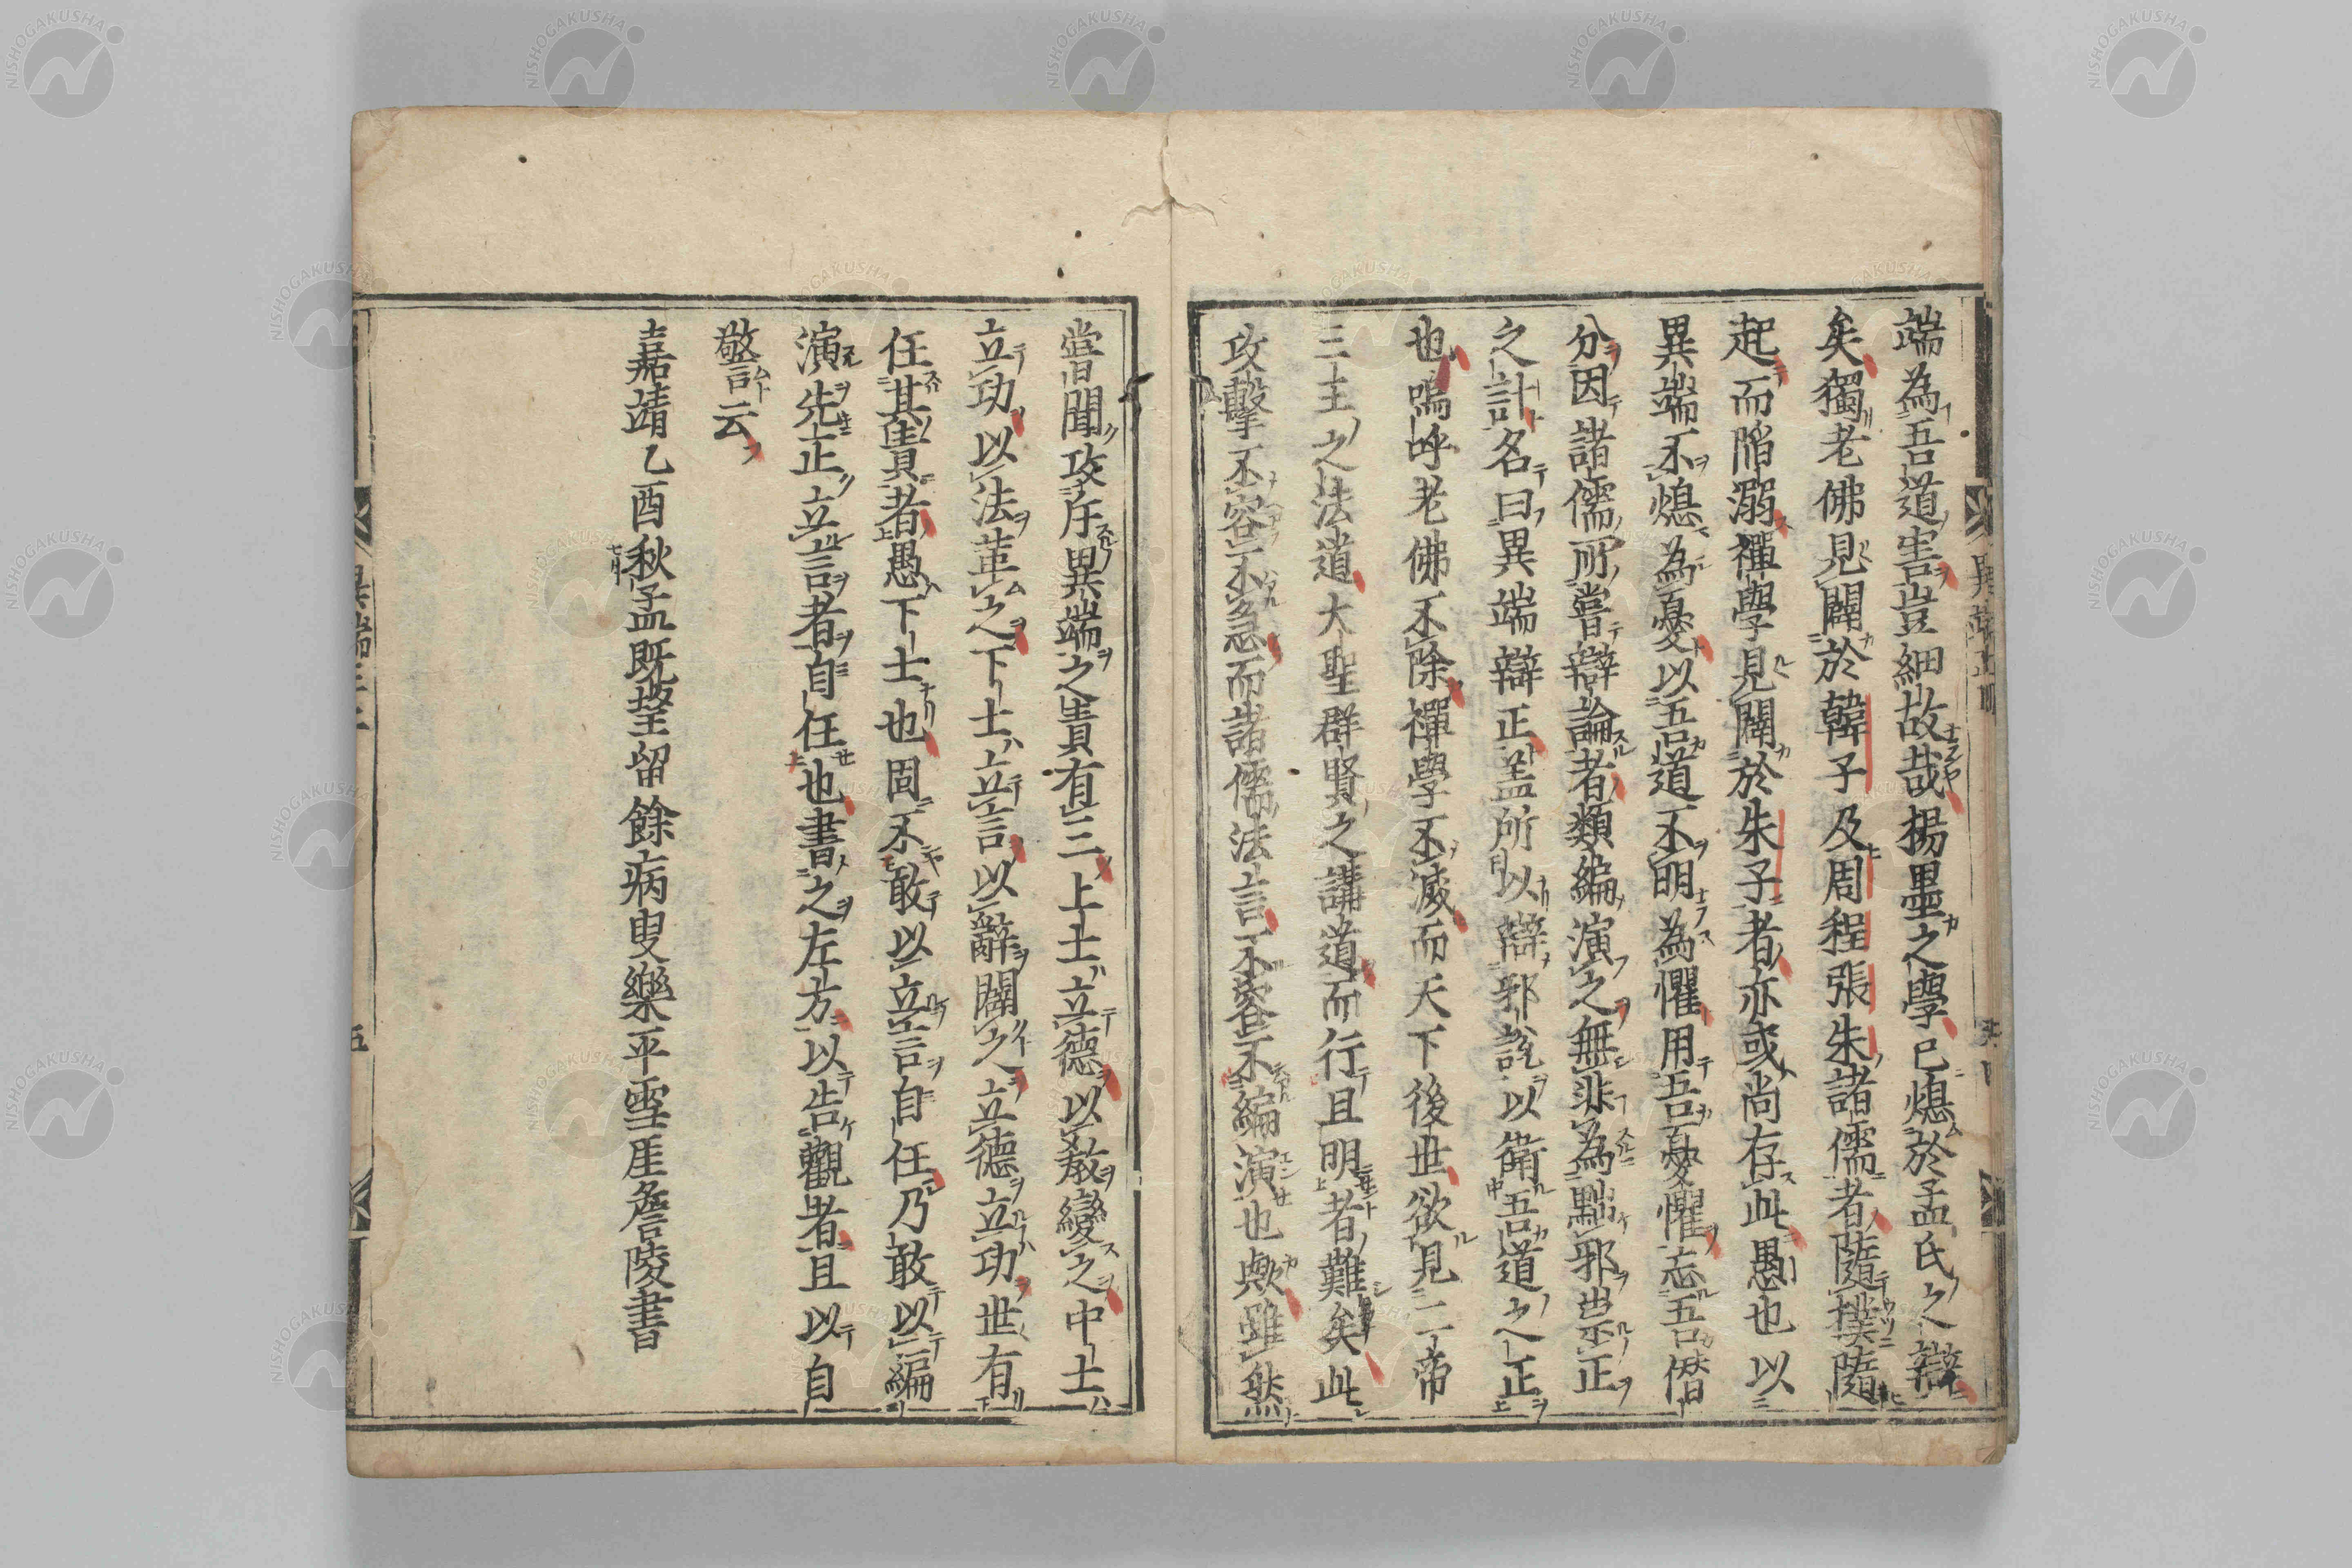 端為吾道害豈細故哉揚墨之學已熄於孟氏之辯
矣獨老佛見闢於韓子及周程張朱諸儒者隨撲隨
起而陷溺禪學見闢於朱子者亦或尚存此愚也以
異端不熄為憂以吾道不明為懼用吾憂懼忘吾僭
分因諸儒所嘗辯論者類編演之無非為黜邪崇正
之計名曰異端辯正蓋所以辯邪說以衛吾道之正
也嗚呼老佛不除禪學不滅而天下後世欲見二帝
三王之法道大聖群賢之講道而行且明者難矣此
攻擊不容不急而諸儒法言不容不編演也歟雖然
嘗聞攻斥異端之責有三上士立德以教變之中士
立功以法革之下士立言以辭闢之立德立功世有
任其責者愚下士也固不敢以立言自任乃敢以編
演先正立言者自任也書之左方以告觀者且以自
警云
嘉靖乙酉秋孟既望留餘病叟樂平雪厓詹陵書
七月
NISHOGAKUSHA